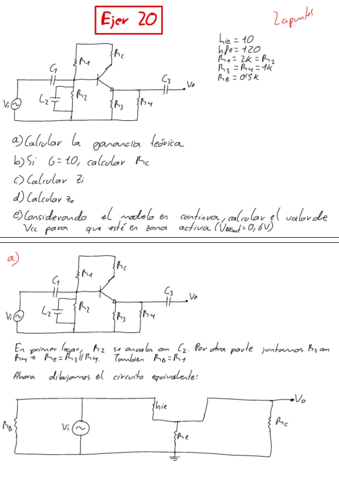 Ejer 20
2 apuntes
hie = 10
hfe = 120
R1 = 2k = R2
R3 = R4 = 1k
RB = 0'5k
C1
R1
Rc
C3
Vo
Vi
C2
R2
R3
R4
a) Calcular la ganancia teórica
b) Si G=10, calcular Rc
c) Calcular Zi
d) Calcular Zo
e) Considerando el modelo en continua, calcular el valor de
Vcc para que esté en zona activa (VBEact=0,6V)
a)
C1
R1
Rc
C3
Vo
Vi
C2
R2
R3
R4
En primer lugar, R2 se anula con C2. Por otra parte juntamos R3 con
R4 → Re=R3//R4. También RB=R1
Ahora dibujamos el circuito equivalente:
RB
Vi
hie
Re
Rc
Vo